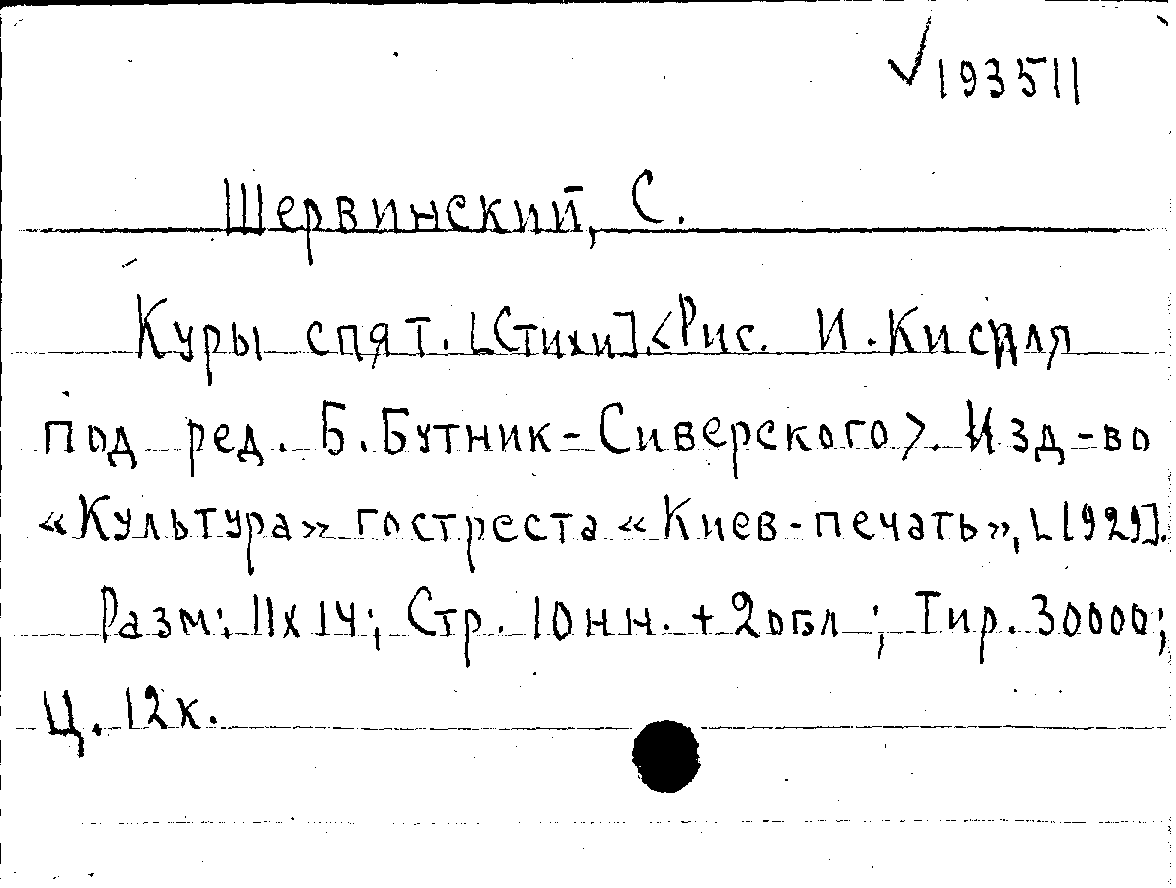 √193511
Шервинский, С.
Куры спят. [Стихи].<Рис. И. Кисиля
под ред. Б. Бутник-Сиверского>. Изд-во
«Культура» гостреста «Киев-печать», [1929].
Разм: 11x14; Стр. 10 нн. + 2 обл; Тир. 30000;
Ц. 12к.